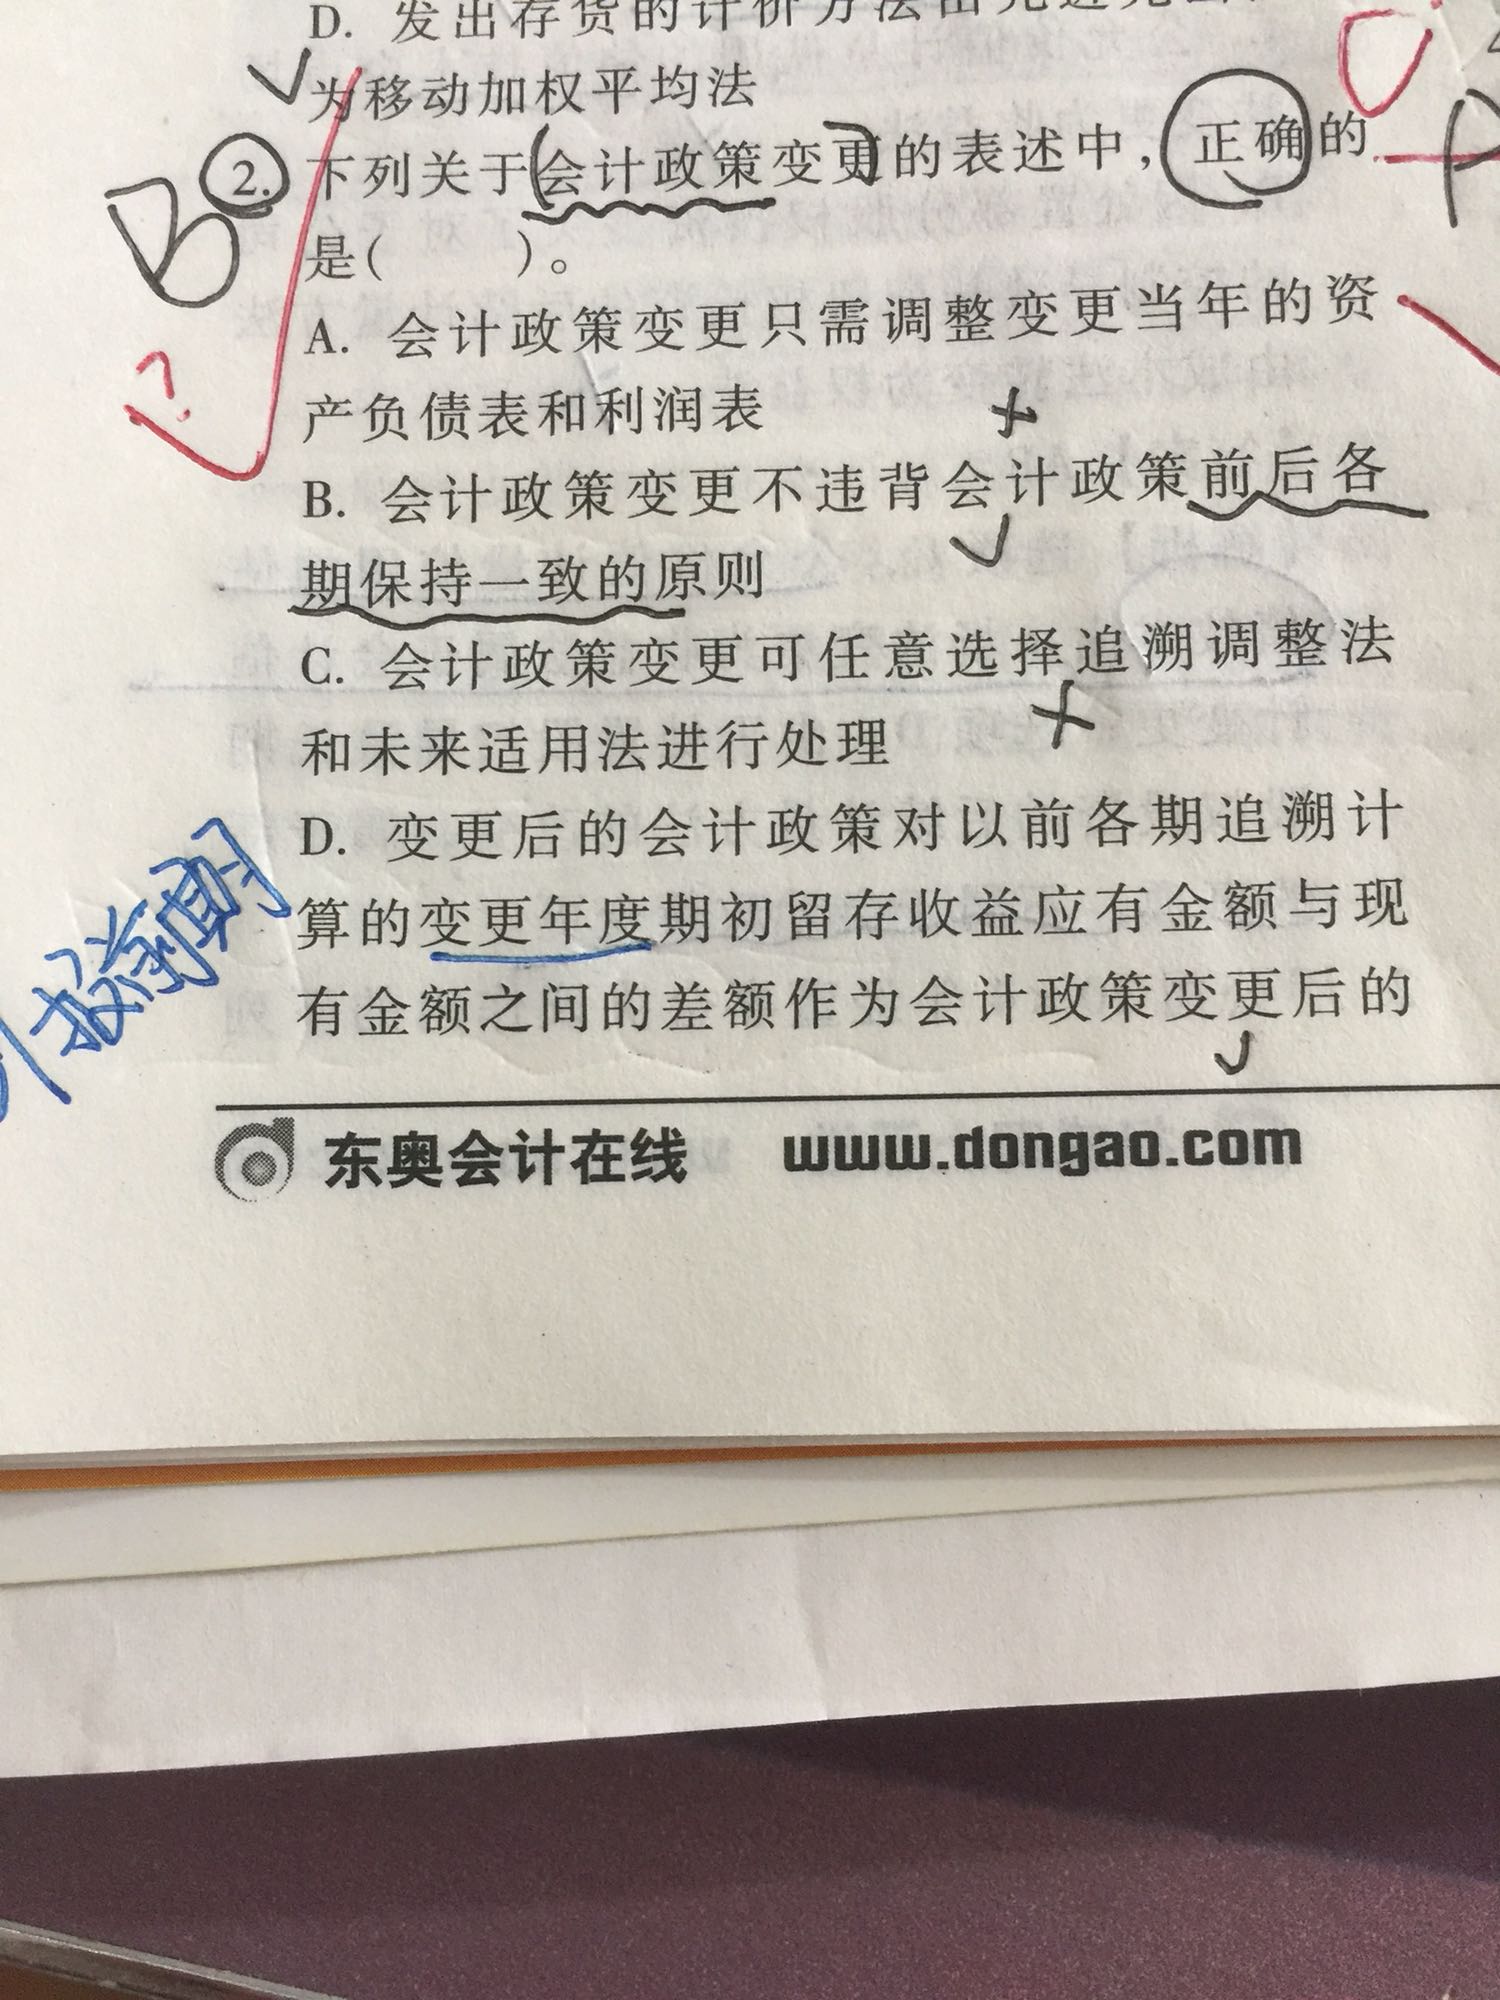 D. 发出存货的计价方法由先进先出法
为移动加权平均法
B 2. 下列关于会计政策变更的表述中，正确的
是(　　)。
A. 会计政策变更只需调整变更当年的资
产负债表和利润表
B. 会计政策变更不违背会计政策前后各
期保持一致的原则
C. 会计政策变更可任意选择追溯调整法
和未来适用法进行处理
D. 变更后的会计政策对以前各期追溯计
算的变更年度期初留存收益应有金额与现
有金额之间的差额作为会计政策变更后的
东奥会计在线 www.dongao.com